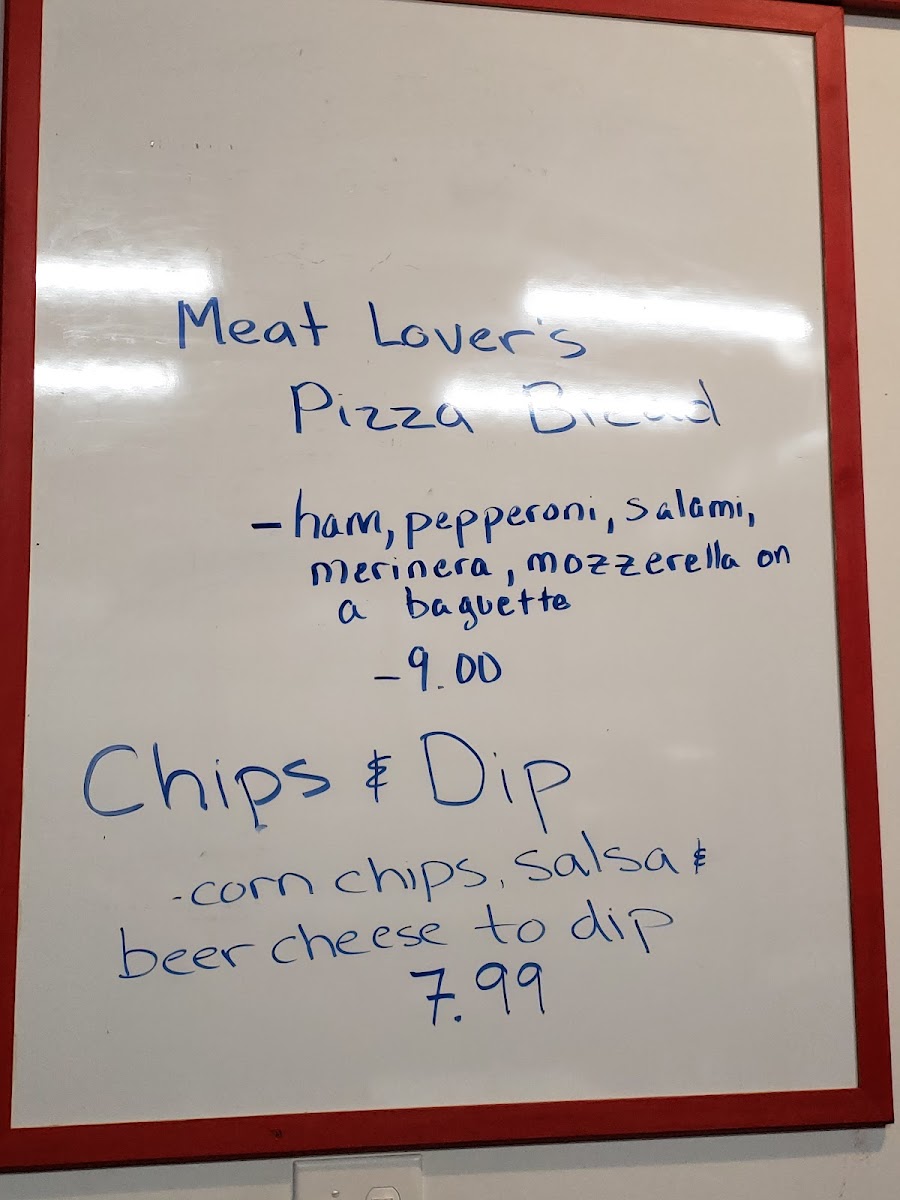 Meat Lover's
Pizza Bread
- ham, pepperoni, salami,
merinera, mozzerella on
a baguette
- 9.00
Chips & Dip
- corn chips, salsa &
beer cheese to dip
7.99